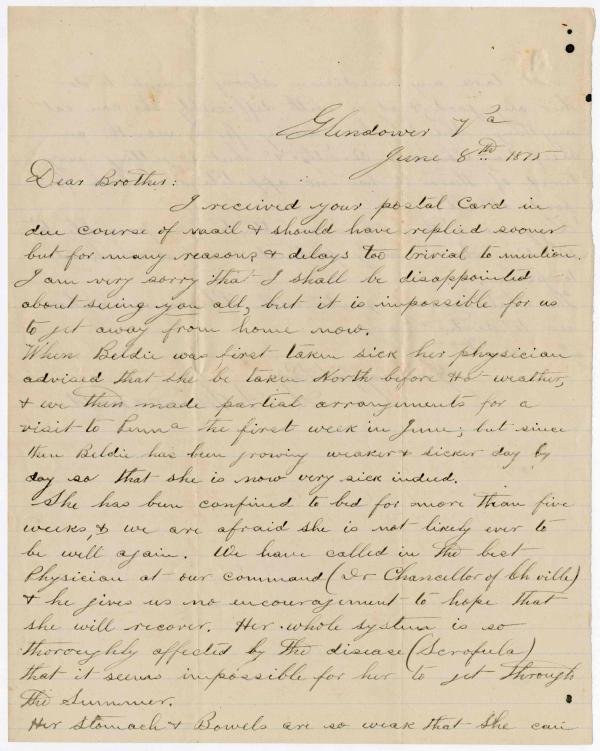 Glendower Va
June 8th. 1875
Dear Brother:
I received your postal Card in
due course of maail & should have replied sooner
but for many reasons & delays too trivial to mention.
I am very sorry that I shall be disappointed
about seeing you all, but it is impossible for us
to get away from home now.
When Beldie was first taken sick her physician
advised that she be taken North before Hot weather,
& we then made partial arrangements for a
visit to Penna the first week in June; but since
then Beldie has been growing weaker & sicker day by
day so that she is now very sick indeed.
She has been confined to bed for more than five
weeks, & we are afraid she is not likely ever to
be well again. We have called in the best
Physician at our command (Dr Chancellor of Ch ville)
& he gives us no encouragement to hope that
she will recover. Her whole system is so
thoroughly affected by the disease (Scrofula)
that it seems impossible for her to get through
the Summer.
Her Stomach & Bowels are so weak that she can